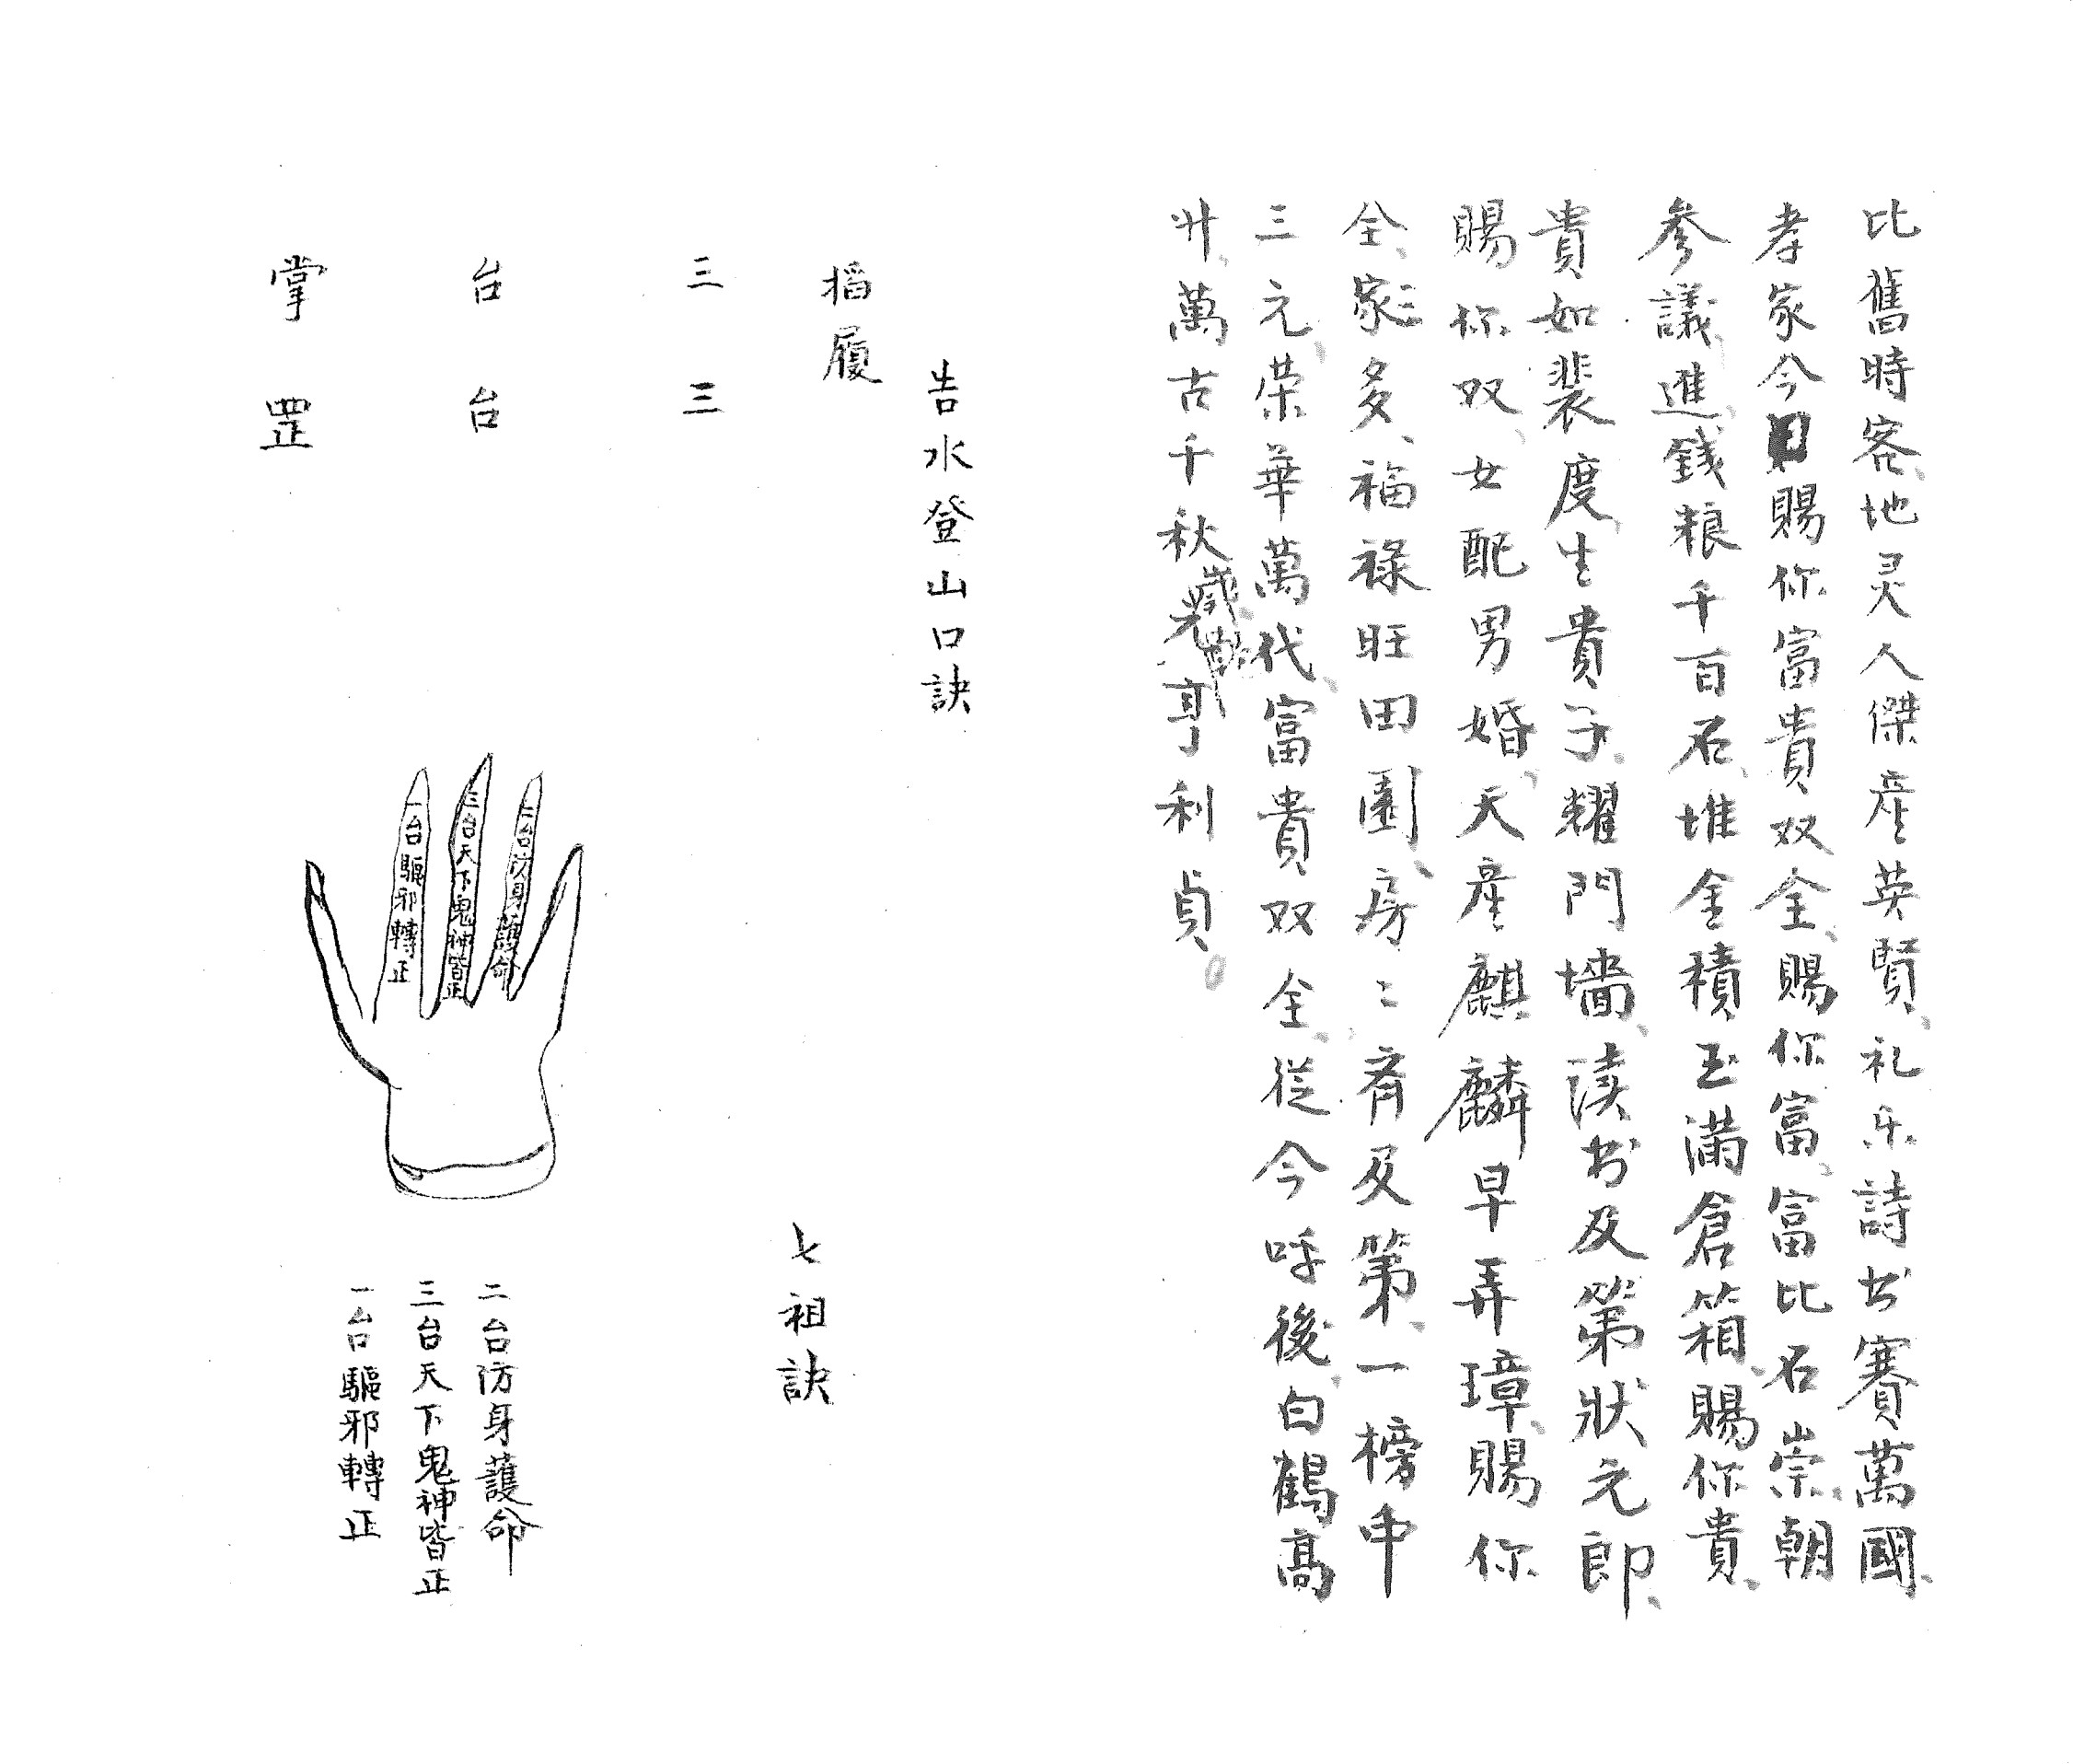 比舊時客、地灵人傑産英賢、礼乐詩书賽萬國、
孝家今日賜你富貴双全、賜你富、富比石崇、朝
參議、進錢粮千百石、堆金積玉滿倉箱、賜你貴、
貴如裴度、生貴子、耀門墻、读书及第狀元郎、
賜你双、女配男婚、天産麒麟早弄璋、賜你
全、家〻多、福祿旺田園、房〻斉及第、一榜中
三元、荣華萬代、富貴双全、從今呼後、白鶴高
升、萬古千秋亨利貞。
告水登山口訣
掐履
七祖訣
三 三
台 台
掌 罡
二台防身護命
三台天下鬼神皆正
一台驅邪轉正
二台防身護命
三台天下鬼神皆正
一台驅邪轉正